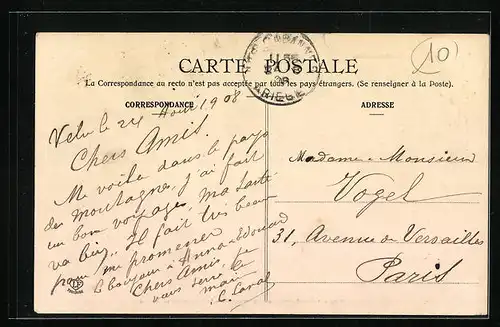 CARTE POSTALE
La Correspondance au recto n'est pas acceptée par tous les pays étrangers. (Se renseigner à la Poste).
CORRESPONDANCE
ADRESSE
10
ARIEGE
le 24 Août 1908
Chers Amis.
Me voila dans le pays
des montagne, j'ai fait
un bon voyage, ma santé
va bien. Il fait très beau
pour me promener
le bonjour à Anna & Edouard
Chers Amis, je
vous serre la
main
Madame & Monsieur
Vogel
31, Avenue de Versailles
Paris